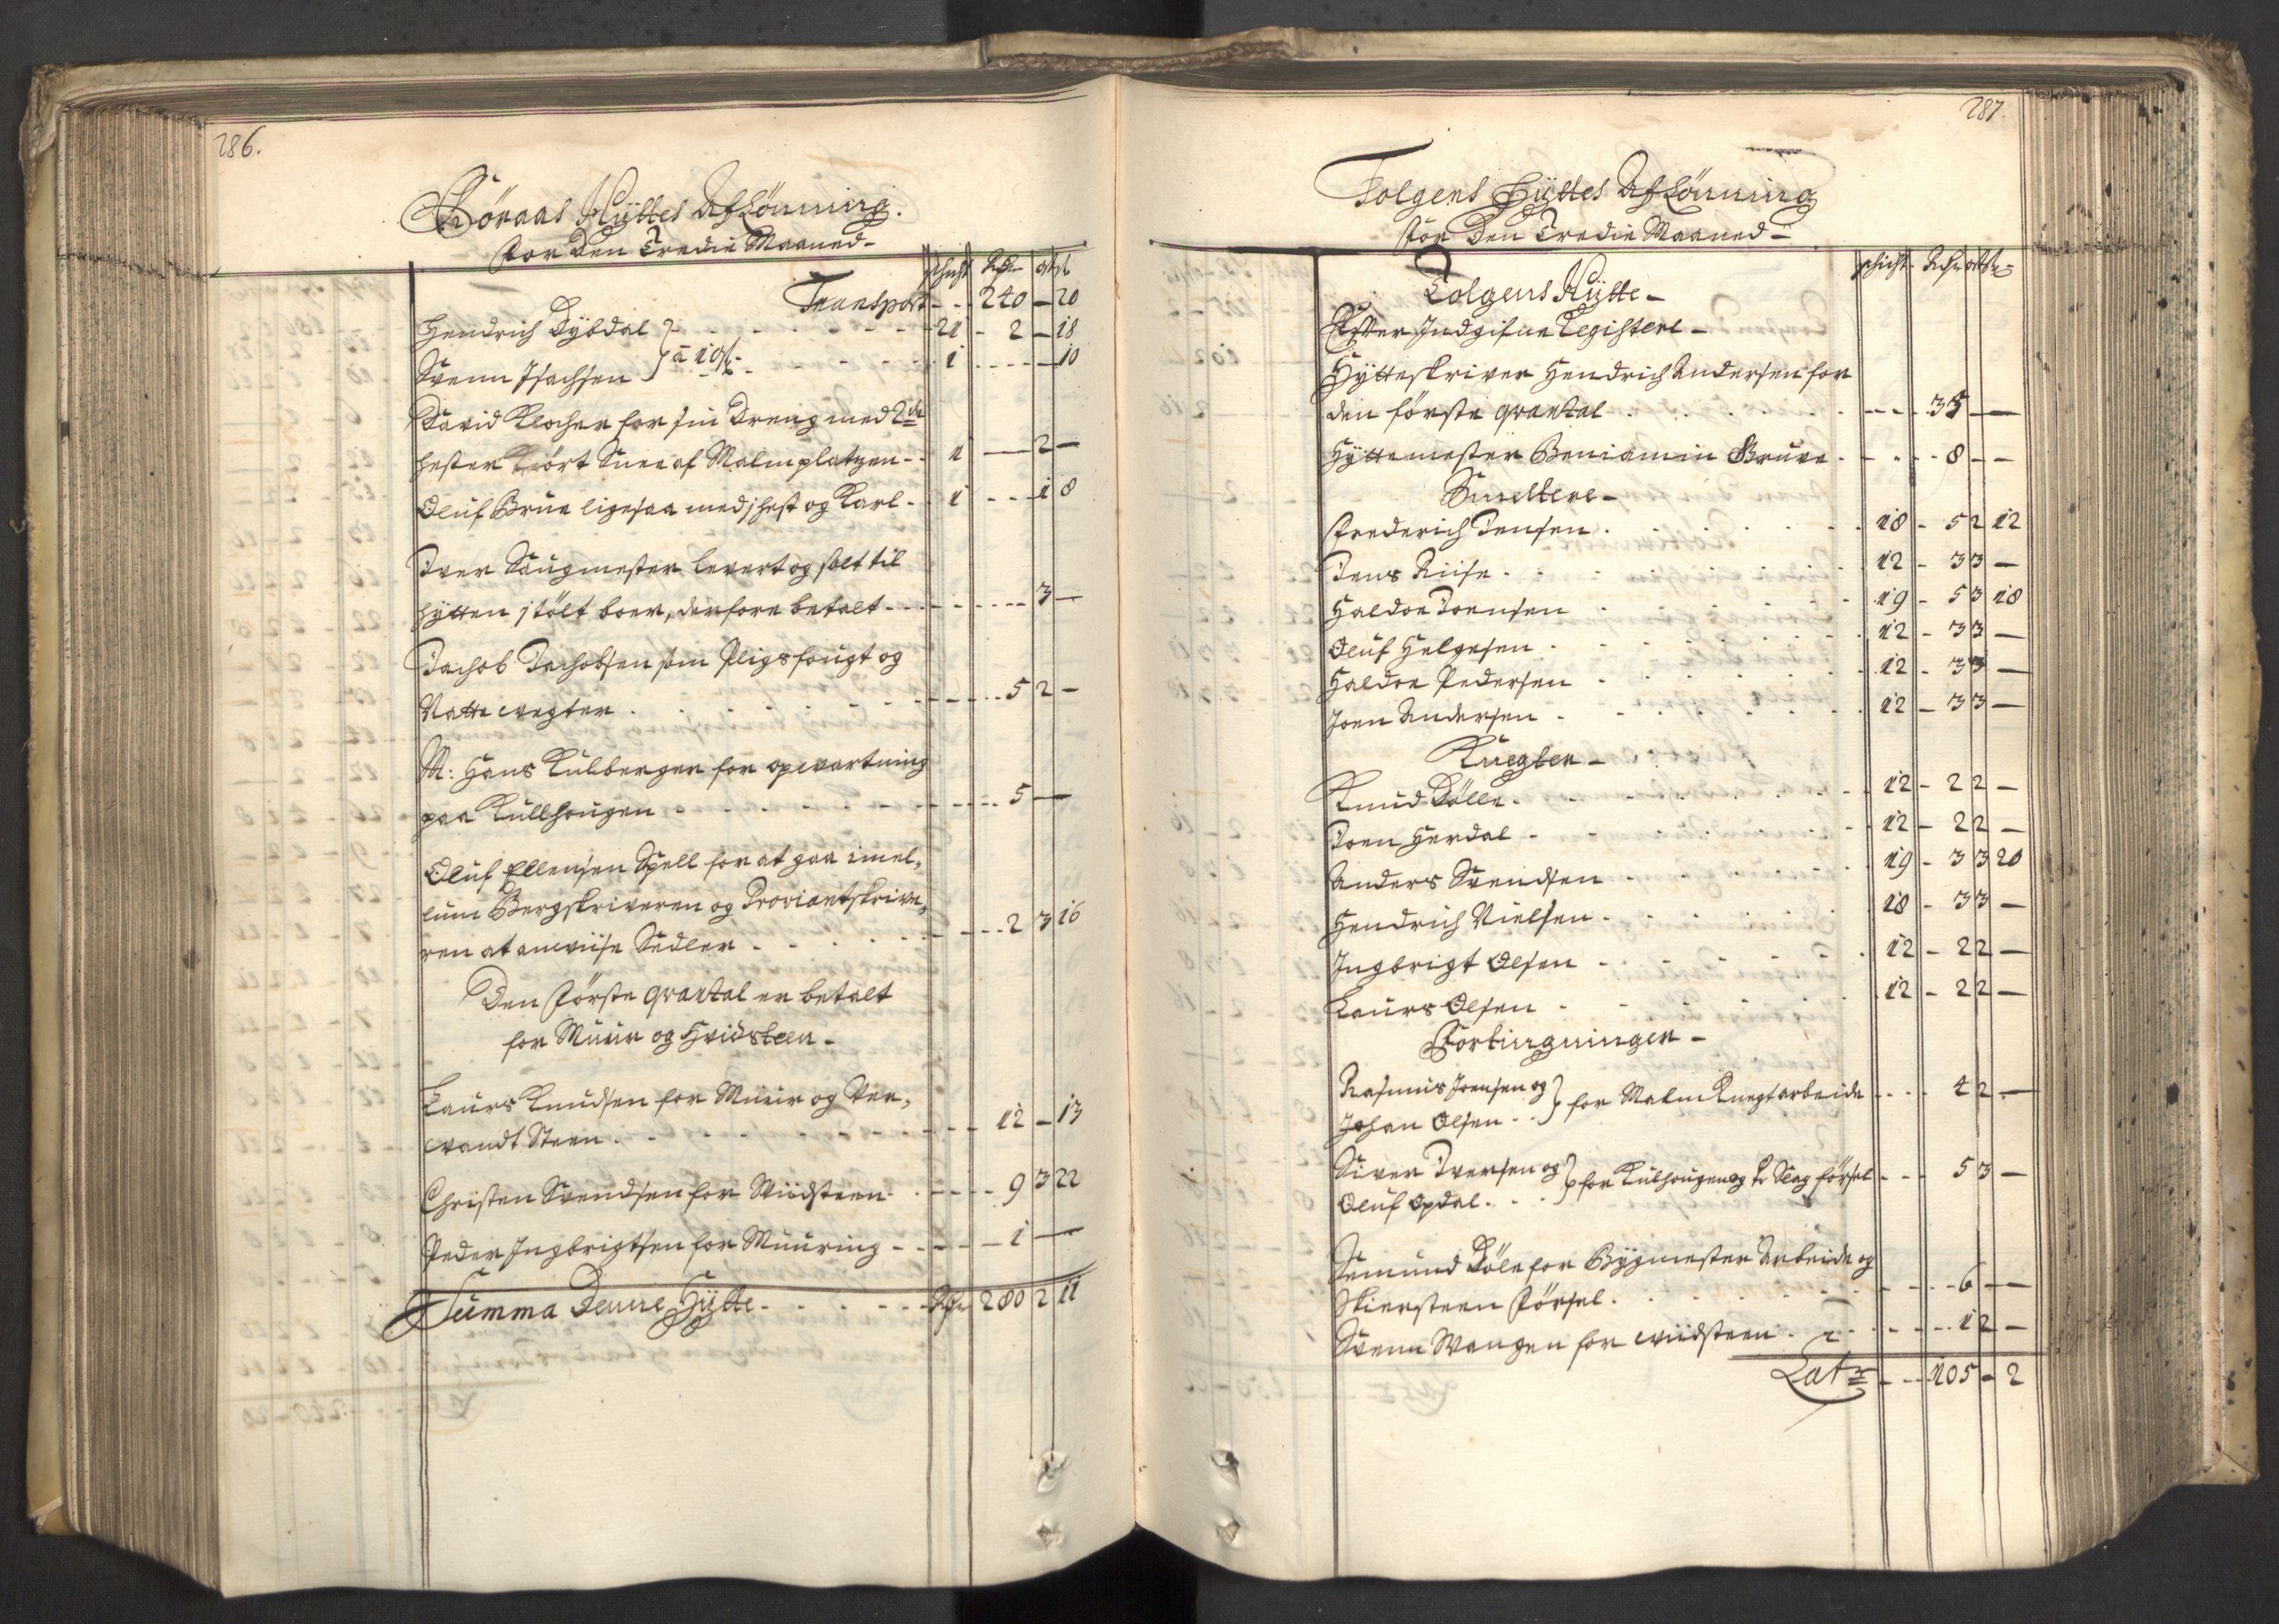 286.
Röraas Hyttes Afslönning.
for Den Tredie Maaned-
schicht Rdr ort s
Transport - - 240 - 20
Hendrich Dybdal } - - 21 - 2 - 18
Svenn Isachsen } à 10 s - - 1 - - - 10
David Klocher for sin Dreng med 2de
hester kört Snee af Malmplatzen - - 1 — 2 —
Oluf Brun ligesaa med j hest og Karl - 1 - - - 1 8
Iver Saugmester levert og solt til
hytten j tölt boer, derfore betalt - - - 3 —
Jachob Jachobsen som Pligsfougt og
Natte wegter - - - 5 2 —
M: Hans Kulberger for opvartning
paa Kullhougen - - - 5 —
Oluf Ellensen Spell for at gaa imel,,
lum Bergskriveren og Proviantskrive,,
ren at anviise Sedler - - - 2 3 16
Den förste qvartal er betalt
for Muur og Hvidsteen -
Laurs Knudsen for Muur og
wandt Steen - - - 12 - 13
Christen Svendsen for Wiidsteen - - - 9 3 22
Peder Ingbrigtsen for Muuring - - - 1 —
Summa Denne Hytte - - - Rdr 280 2 11
287.
Tolgens Hyttes Afslönning
for Den Tredie Maaned -
schicht - Rdr ort s -
Tolgens Hytte -
Efter Indgifne Registere -
Hytteskriver Hendrich Andersen for
den förste qvartal - - - 35 —
Hyttemester Beniamin Bruun - - - 8 — —
Smeltere -
Frederich Jensen - 18 - 5 2 12
Jens Riise - 12 - 3 3 —
Haldor Joensen - 19 - 5 3 18
Oluf Helgesen - 12 - 3 3 —
Haldor Pedersen - 12 - 3 3 —
Joen Andersen - 12 - 3 3 —
Knegter -
Knud Dölle - 12 - 2 2 —
Joen Herdal - 12 - 2 2 —
Anders Svendsen - 19 - 3 3 20
Hendrich Nielsen - 18 - 3 3 —
Ingbrigt Olsen - 12 - 2 2 —
Laurs Olsen - 12 - 2 2 —
Fortingninger -
Rasmus Joensen og
Johan Olsen - - } for Malm Knegt arbeide - - - 4 2 —
Siver Iversen og
Oluf Opdal - - } for Kulhougen og Slag försel - - - 5 3 —
Semund Döle for Bygmester Arbeide og
Skiersteen försel - - - 6 — —
Svenn Wangen for wiidsteen - - - 1 2 —
Lat - - 105 - 2